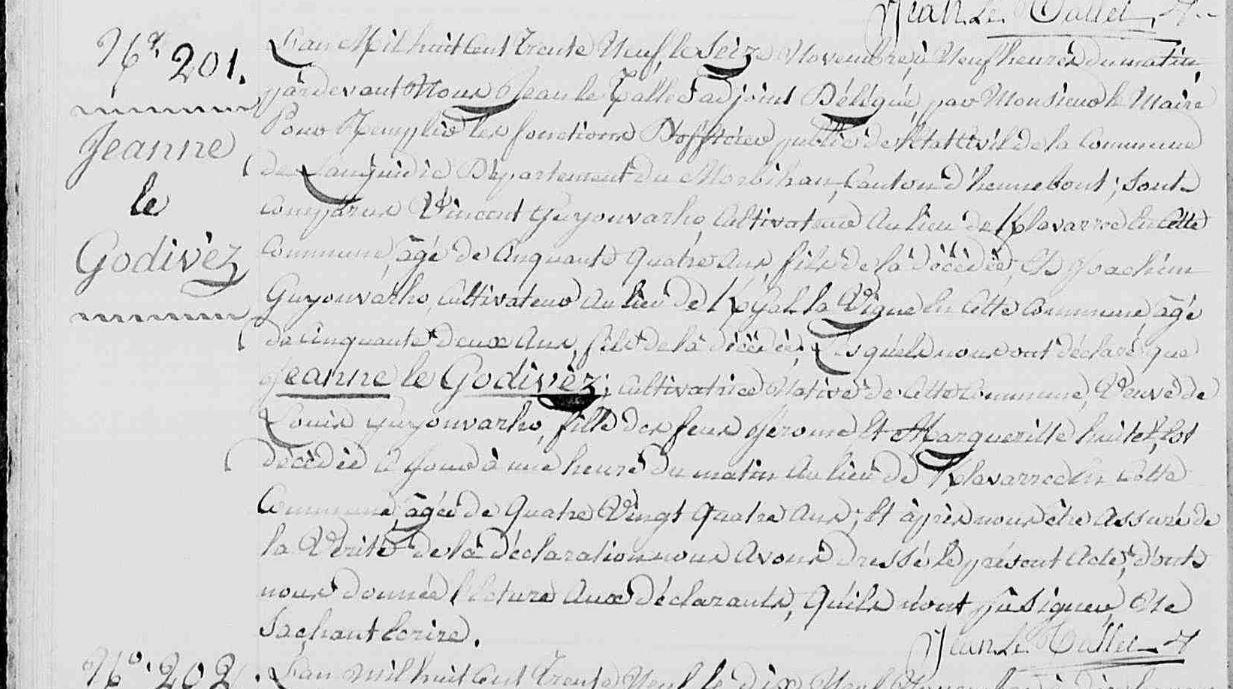 Jean Le Tallec
Nº 201.
Jeanne
le
Godivèz
L'an Mil huit Cent Trente Neuf, le Seize Novembre, à Neuf heures du matin,
pardevant Nous Jean le Tallec adjoint Délégué par Monsieur le Maire
Pour Remplir les fonctions D'officier public de l'État Civil de la Commune
de Languidic Département du Morbihan, Canton d'hennebont; sont
comparus Vincent Guyonvarho, Cultivateur Au lieu de Klavarrec En Cette
Commune, âgé de Cinquante Quatre Ans, fils de la décédée, Et Joachim
Guyonvarho, Cultivateur Au lieu de la Vigne En Cette Commune âgé
de Cinquante deux Ans, fils de la décédée; Lesquels nous ont déclaré que
Jeanne le Godivèz; Cultivatrice Native de Cette Commune, Veuve de
Louis Guyonvarho, fille des feus Jérome Et Margueritte huitel, Est
décédée Ce Jour à une heure du matin Au lieu de Klavarrec En Cette
Commune, âgée de Quatre Vingt Quatre Ans; Et après nous être Assuré de
la Vérité de la déclaration nous Avons dressé le présent Acte, dont
nous donnée lecture Aux déclarants, Qu'ils n'ont pû Signer, Ne
Sachant Ecrire.
Jean Le Tallec
Nº. 202.
L'an mil huit Cent Trente Neuf le dix Neuf Novembre à